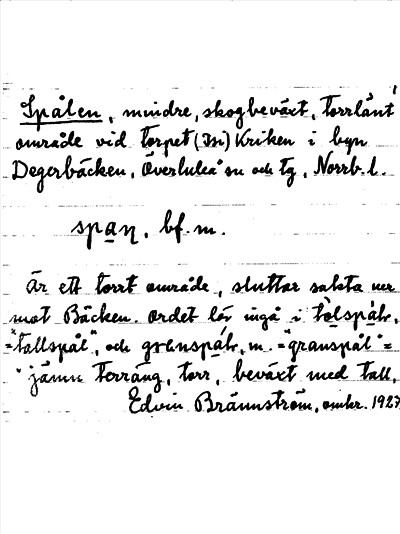 Spålen, mindre, skogbeväxt, torrlänt
område vid torpet (Ini) Kriken i byn
Degerbäcken, Överluleå sn och tg, Norrb. l.
span, bf. m.
Är ett torrt område, sluttar sakta ner
mot Bäcken. Ordet lär ingå i tòlspàtr,
="tallspål", och granspàtr, m. ="granspål"=
"jämn terräng, torr, beväxt med tall,
Edvin Brännström, omkr. 1927